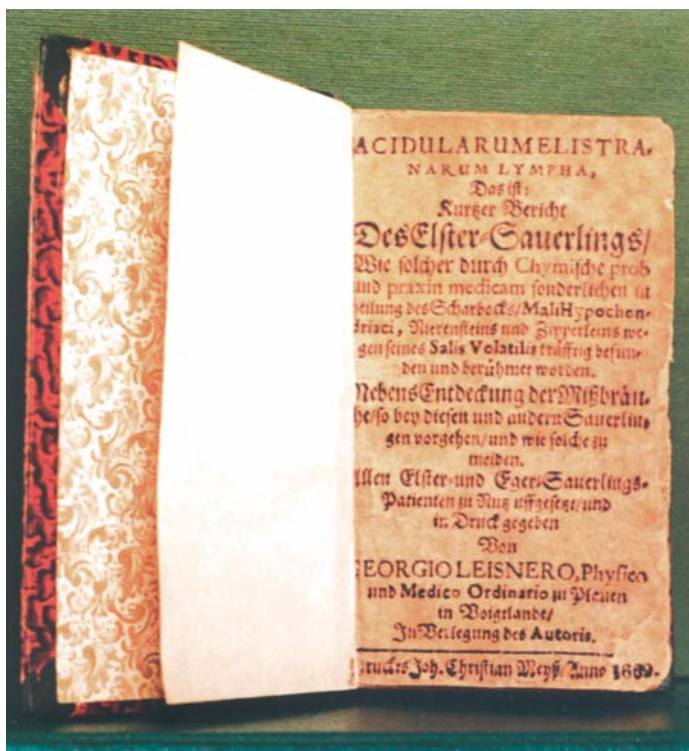 ACIDULARUM ELISTRA-
NARUM LYMPHA,
Das ist:
Kurtzer Bericht
Des Elster-Sauerlings/
Wie solcher durch Chymische prob
und praxin medicam sonderlichen in
heilung des Scharbocks/ Mali Hypochon-
driaci, Nierensteins und Zipperleins we-
gen seines Salis Volatilis kräfftig befun-
den und berühmet worden.
Nebens Entdeckung der Mißbräu-
che/ so bey diesen und andern Sauerlin-
gen vorgehen/ und wie solche zu
meiden.
Allen Elster- und Eger-Sauerlings-
Patienten zu Nutz uffgesetzt/ und
in Druck gegeben
Von
GEORGIO LEISNERO, Physico
und Medico Ordinario zu Plauen
in Voigtlande/
In Verlegung des Autoris.
Joh. Christian Meyß/ Anno